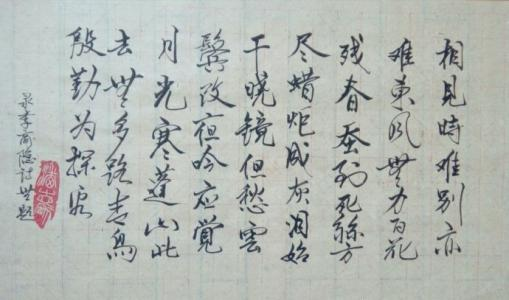 相見時难别亦
难東风無力百花
残春蚕到死絲方
尽蜡炬成灰泪始
干晓镜但愁雲
鬓改夜吟应覺
月光寒蓬山此
去無多路青鳥
殷勤为探看
录李商隐诗無题